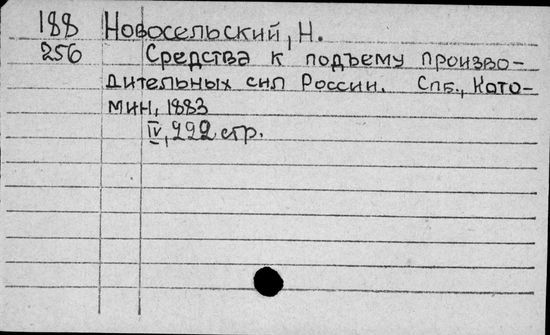 188 Новосельский, Н.
256 Средства к подъему произво-
дительных сил России. Спб., Като-
мин, 1883
IV, 292 стр.